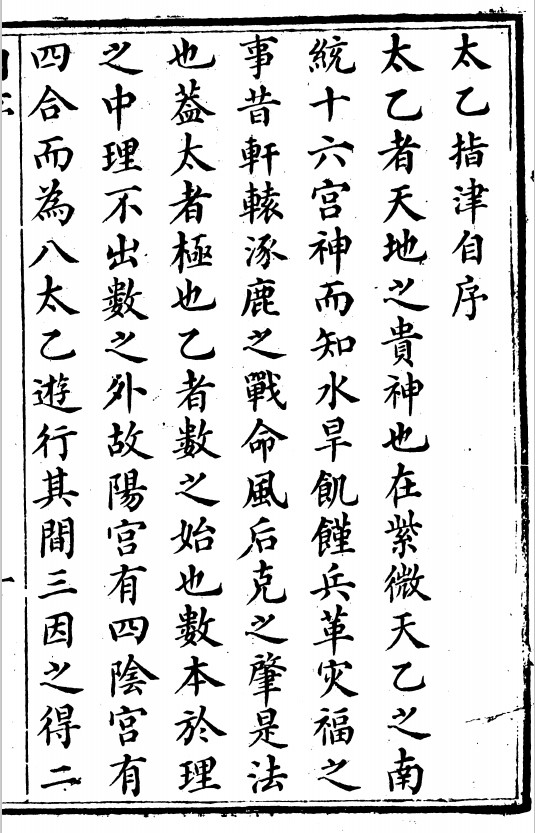 太乙指津自序
太乙者天地之貴神也在紫微天乙之南
統十六宮神而知水旱飢饉兵革灾福之
事昔軒轅涿鹿之戰命風后克之肇是法
也蓋太者極也乙者數之始也數本於理
之中理不出數之外故陽宮有四陰宮有
四合而為八太乙遊行其間三因之得二